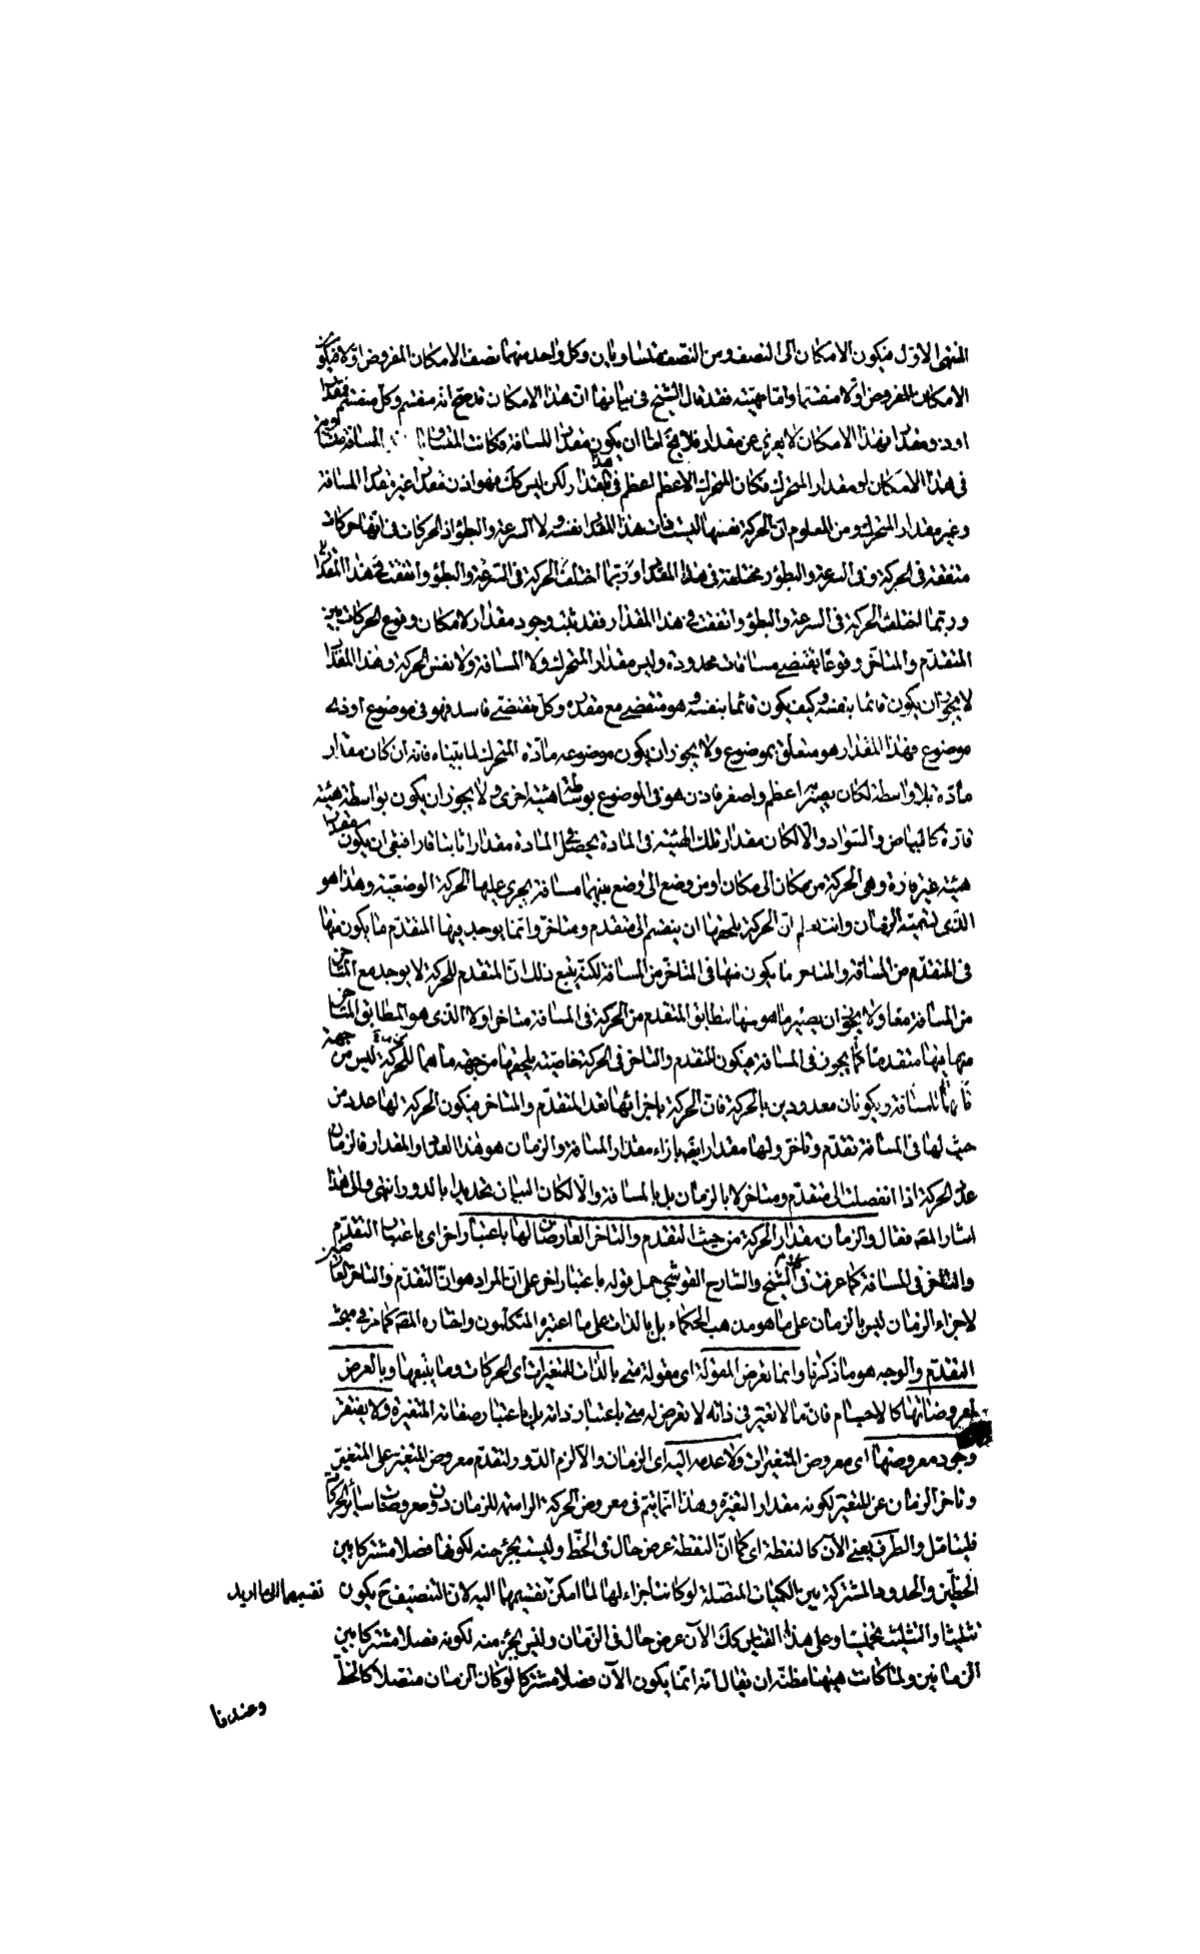 المنتهى الاول فيكون الامكان الى النصف ومن النصف متساويان وكل واحد منهما نصف الامكان المفروض اولا فيكون
الامكان المفروض اولا منقسما واما مهيته فقد قال الشيخ فى بيانها ان هذا الامكان قد صح انه منقسم وكل منقسم فمقدار
او ذو مقدار فهذا الامكان لا يعرى عن مقدار فلا يخ اما ان يكون مقدارا للمسافة فكانت المسافة
فى هذا الامكان او مقدار المتحرك فكان المتحرك الاعظم اعظم فى المقدار لكن ليس كك فهو اذن مقدار غير مقدار المسافة
وغير مقدار المتحرك ومن المعلوم ان الحركة نفسها ليست ذات هذا المقدار نفسه ولا السرعة والبطؤ اذ الحركات فى انها حركات
متفقة فى الحركة وفى السرعة والبطؤ ومختلفة فى هذا المقدار وربما اختلف الحركة فى السرعة والبطؤ واتفقت فى هذا المقدار
وربما اختلفت الحركة فى السرعة والبطؤ واتفقت فى هذا المقدار فقد ثبت وجود مقدار لامكان وقوع الحركات بين
المتقدم والمتاخر وقوعا يقتضى مسافات محدودة وليس مقدار المتحرك ولا المسافة ولا نفس الحركة وهذا المقدار
لا يجوز ان يكون قائما بنفسه وكيف يكون قائما بنفسه وهو منقضى مع مقدره وكل منقضى فاسد فهو فى موضوع او ذى
موضوع فهذا المقدار هو متعلق بموضوع ولا يجوز ان يكون موضوعه مادة المتحرك لما بيناه فانه ان كان مقدار
مادة بلا واسطة لكان يصير اعظم واصغر فاذن هو فى الموضوع بوساطة هيئة اخرى ولا يجوز ان يكون بواسطة هيئة
قارة كالبياض والسواد والا لكان مقدار تلك الهيئة فى المادة يحصل فى المادة مقدارا ثابتا قارا فبقى ان يكون مقدار
هيئة غير قارة وهى الحركة من مكان الى مكان او من وضع الى وضع بينهما مسافة يجرى عليها الحركة الوضعية وهذا هو
الذى نسميه الزمان وانت تعلم ان الحركة يلحقها ان ينقسم الى متقدم ومتاخر وانما يوجد فيها المتقدم ما يكون منها
فى المتقدم من المسافة والمتاخر ما يكون منها فى المتاخر من المسافة لكنه يتبع ذلك ان المتقدم للحركة لا يوجد مع المتاخر
من المسافة معا ولا يجوز ان يصير ما هو منها مطابق المتقدم من الحركة فى المسافة متاخرا ولا الذى هو المطابق المتاخر
منها فيها متقدما كما يجوز فى المسافة فيكون للتقدم والتاخر فى الحركة خاصية يلحقها من جهة ما هما للحركة ليس من جهة
للمسافة ويكونان معدودين بالحركة فان الحركة باجزائها تعد المتقدم والمتاخر فيكون الحركة لها عدد من
حيث لها فى المسافة تقدم وتاخر ولها مقدار ايضا بازاء مقدار المسافة والزمان هو هذا العدد والمقدار فالزمان
عدد الحركة اذا انفصلت الى متقدم ومتاخر لا بالزمان بل بالمسافة والا لكان البيان تحديدا بالدور انتهى والى هذا
اشار المص فقال والزمان مقدار الحركة من حيث التقدم والتاخر العارضان لها باعتبار اخر اى باعتبار التقدم
والتاخر فى المسافة كما عرفت فى كلام الشيخ والشارح القوشجى حمل قوله باعتبار اخر على ان المراد هو ان التقدم والتاخر العارضين
لاجزاء الزمان ليس بالزمان على ما هو مذهب الحكماء بل بالذات على ما اعتبره المتكلمون واختاره المص كما مر فى مبحث
التقدم والوجه هو ما ذكرنا وانما تعرض المقولة اى مقولة متى بالذات للمتغيرات اى الحركات وما يتبعها وبالعرض
لمعروضاتها كالاجسام فان ما لا تغير فى ذاته لا تعرض له متى باعتبار ذاته بل باعتبار صفاته المتغيرة ولا يفتقر
وجود معروضها اى معروض المتغيرات ولا عدمه اليه اى الزمان والا لزم الدور لتقدم معروض المتغير على المتغير
وتاخر الزمان عن المتغير لكونه مقدار التغير وهذا انما يتم فى معروض الحركة الراسمة للزمان دون معروضات سائر الحركات
فليتامل والطرف يعنى الآن كالنقطة اى كما ان النقطة عرض حال فى الخط وليست بجزء منه لكونها فصلا مشتركا بين
الخطين والحدود المشتركة بين الكميات المتصلة لو كانت اجزاء لها لما امكن تقسيمها اليه لان التنصيف ح يكون
تقسيمها الى ما اريد
تثليثا والتثليث تخميسا وعلى هذا القياس كك الآن عرض حال فى الزمان وليس بجزء منه لكونه فصلا مشتركا بين
الزمانين ولما كانت هيهنا مظنة ان يقال انه انما يكون الآن فصلا مشتركا لو كان الزمان متصلا كالخط
وعندنا